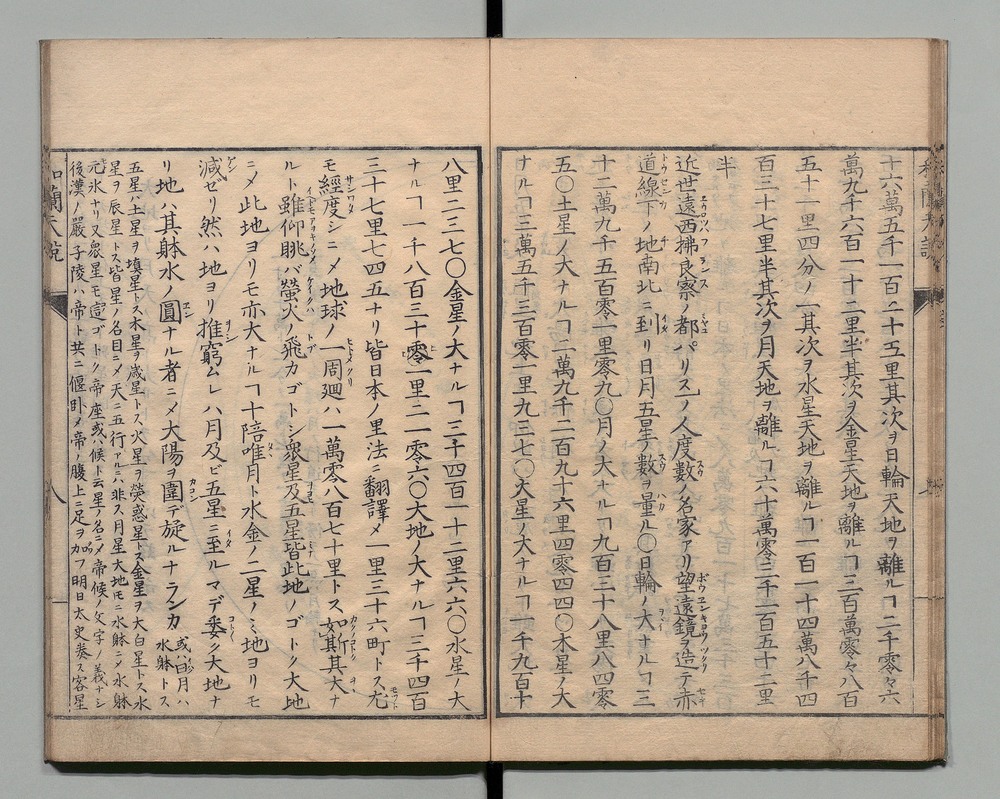 十六萬五千一百二十五里其次ヲ日輪天地ヲ離ルヿ二千零々六
萬九千六百一十二里半其次ヲ金星天地ヲ離ルヿ三百萬零々八百
五十一里四分ノ一其次ヲ水星天地ヲ離ルヿ一百一十四萬八千四
百三十七里半其次ヲ月天地ヲ離ルヿ六十萬零三千一百五十二里
半
近世遠西拂良察ノ都パリスニノ人度數ノ名家アリ望遠鏡ヲ造テ赤
道線下ノ地南北ニ到リ日月五星ノ數ヲ量ル〇日輪ノ大ナルヿ三
十二萬九千五百零一里零九〇月ノ大ナルヿ九百三十八里八四零
五〇土星ノ大ナルヿ二萬九千二百九十六里四零四四〇木星ノ大
ナルヿ三萬五千三百零一里九三七〇火星ノ大ナルヿ一千九百十
八里二三七〇金星ノ大ナルヿ三千四百一十二里六六〇水星ノ大
ナルヿ一千八百三十零一里二一零六〇大地ノ大ナルヿ三千四百
三十七里七四五ナリ皆日本ノ里法ニ翻譯メ一里三十六町トス尤
モ經度シニメ地球ノ一周廻ハ一萬零八百七十里トス如斯其大ナ
ルト雖仰眺バ螢火ノ飛カゴトシ衆星及五星皆此地ノゴトク大地
ニメ此地ヨリモ亦大ナルヿ十陪唯月ト水金ノ二星ノミ地ヨリモ
減ゼリ然ハ地ヨリ推窮ムレハ月及ビ五星ニ至ルマデ委ク大地ナ
リ地ハ其躰水ノ圓ナル者ニメ大陽ヲ圍デ旋ルナランカ或ハ曰月ハ水躰トス
五星ハ土星ヲ填星トス木星ヲ歳星トス火星ヲ熒惑星トス金星ヲ大白星トス水
星ヲ辰星トス皆星ノ名目ニメ天ニ五行アルニハ非ス月星大地モニ水躰ニメ水躰
元氷ナリ又衆星モ寔ゴトク帝座或ハ候ト云星ノ名ニメ帝候ノ文字ノ義ナシ
後漢ノ嚴子陵ハ帝ト共ニ偃卧メ帝ノ腹上ニ足ヲ加フ明日太史奏ス客星
和蘭天説
八